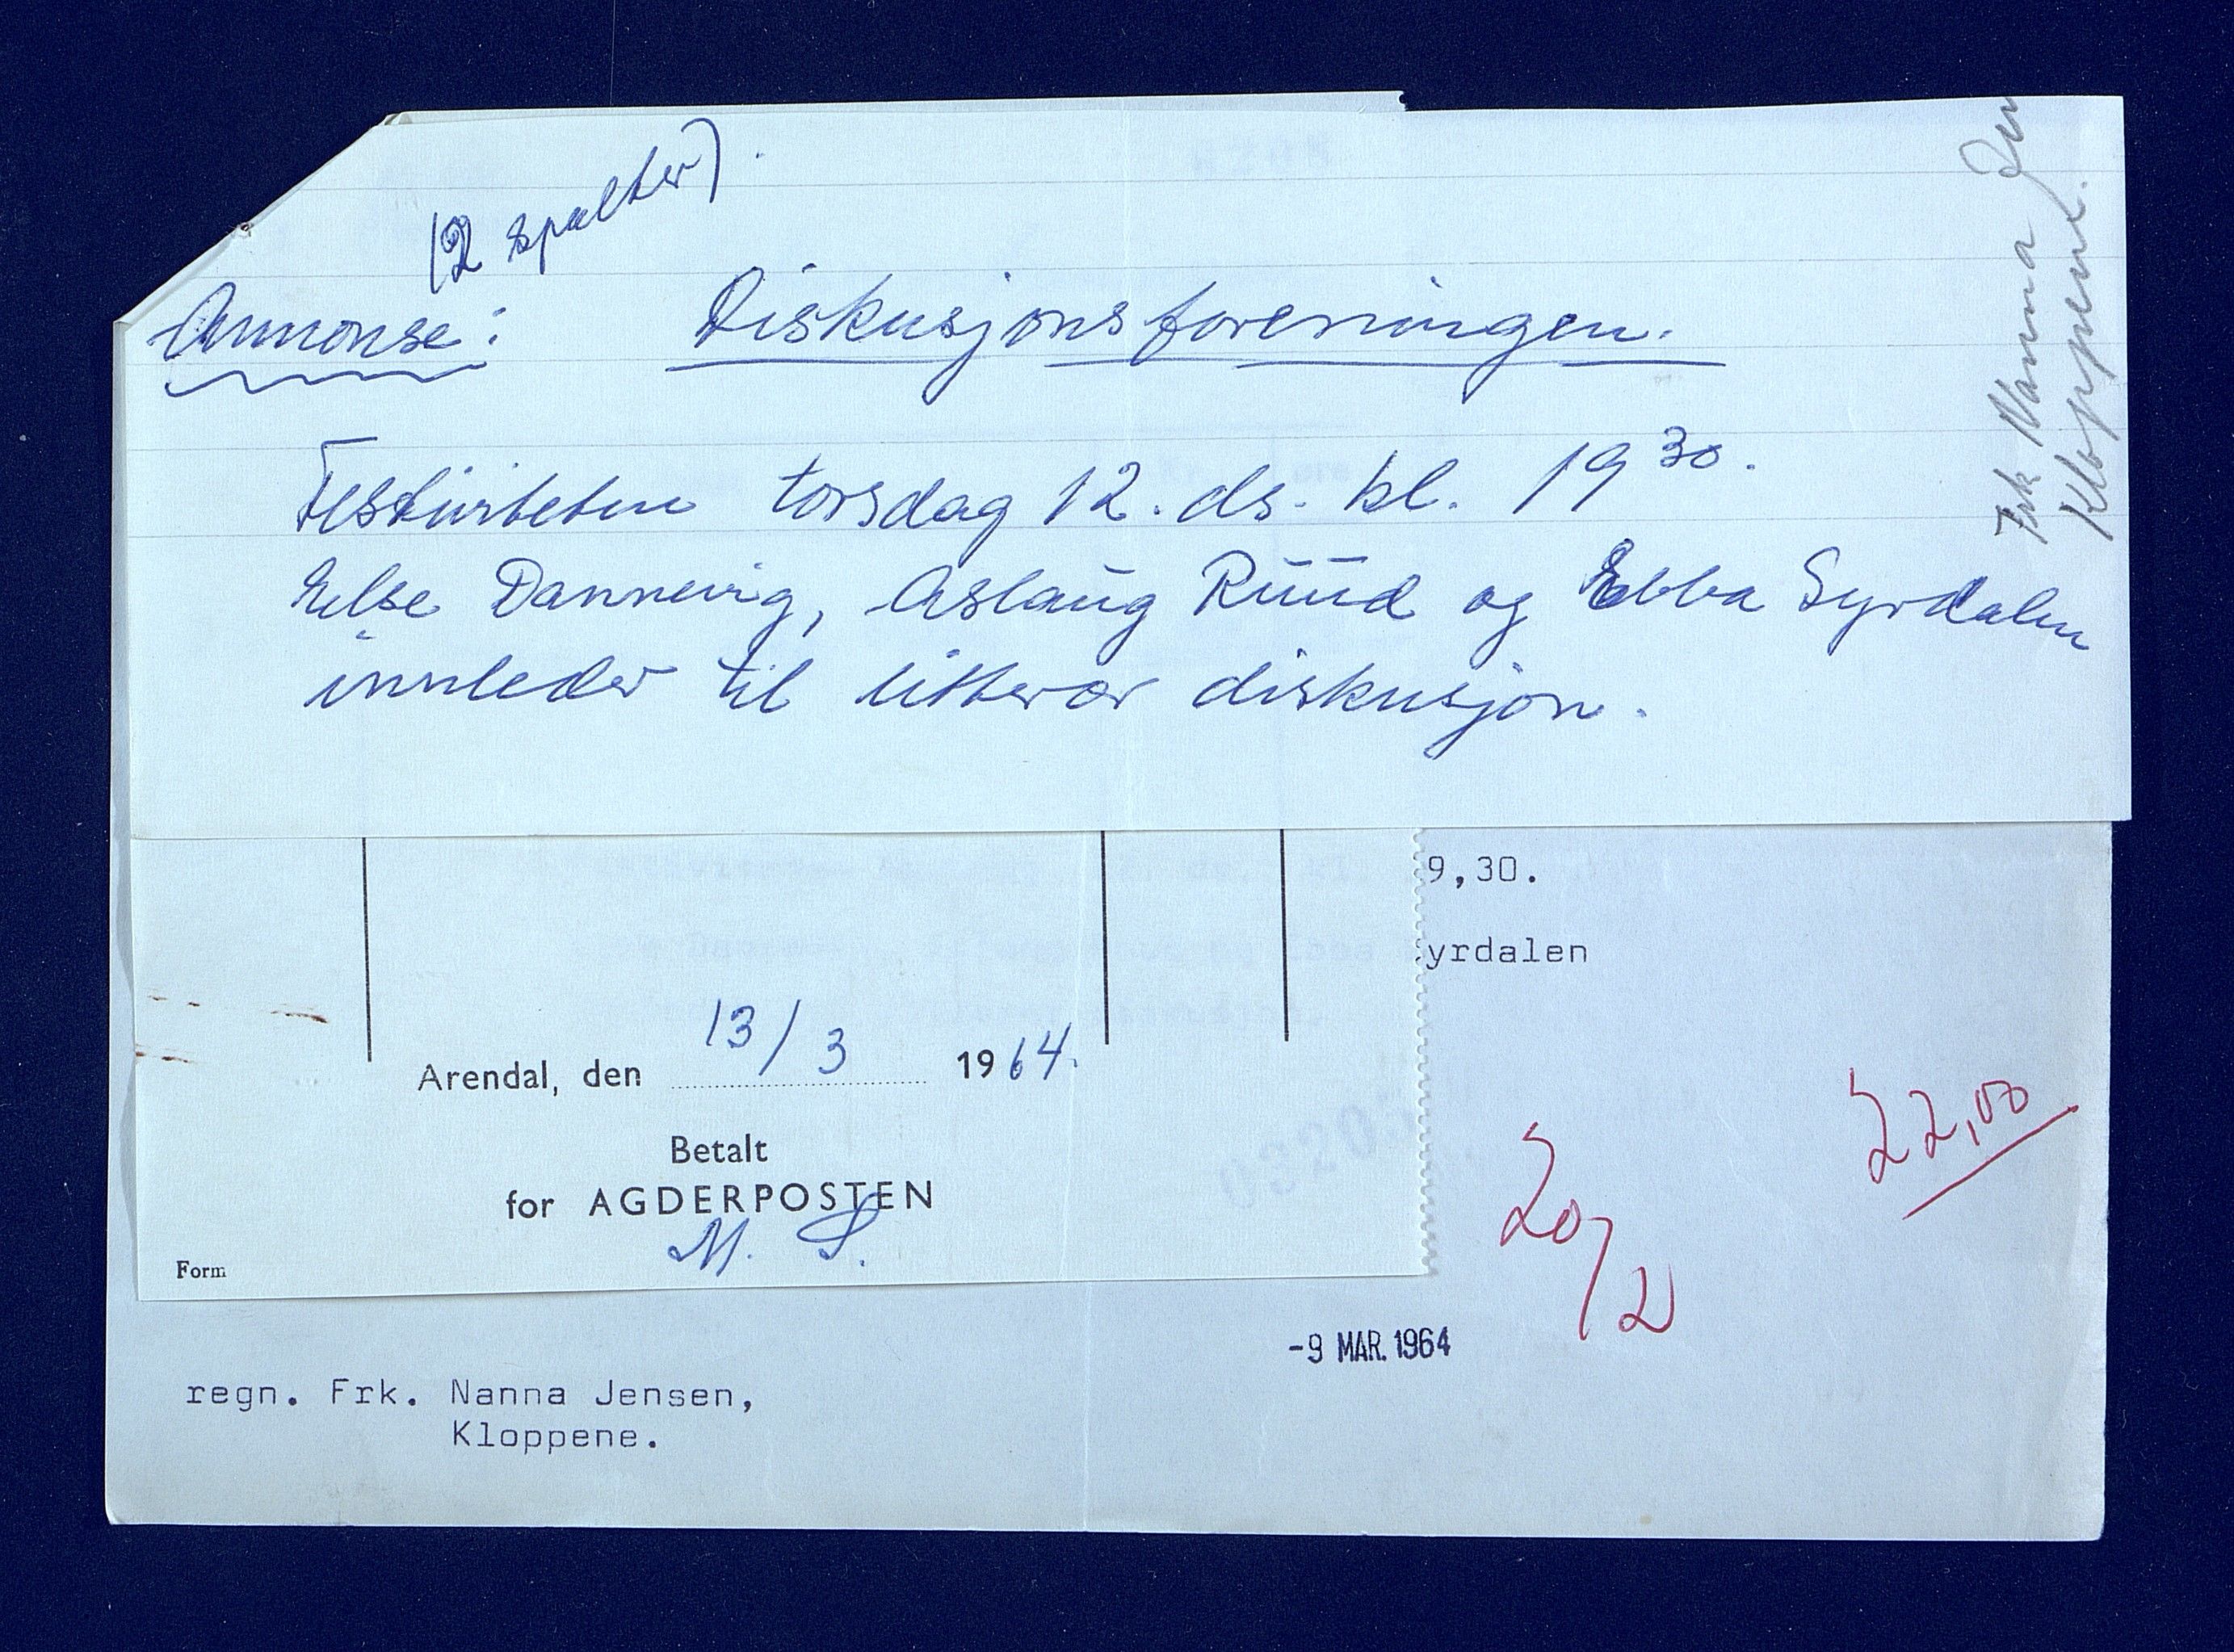 (2 spalter).
Annonse: Diskusjonsforeningen.
Festiviteten torsdag 12. ds. kl. 19 30.
Else Dannevig, Aslaug Ruud og Ebba Syrdalen
innleder til litterær diskusjon.
Frk Nanna Jen
Kloppene.
9,30.
yrdalen
Arendal, den 13/3 1964.
Betalt
for AGDERPOSTEN
M. S.
Form
22,00
20/2
-9 MAR. 1964
regn. Frk. Nanna Jensen,
Kloppene.